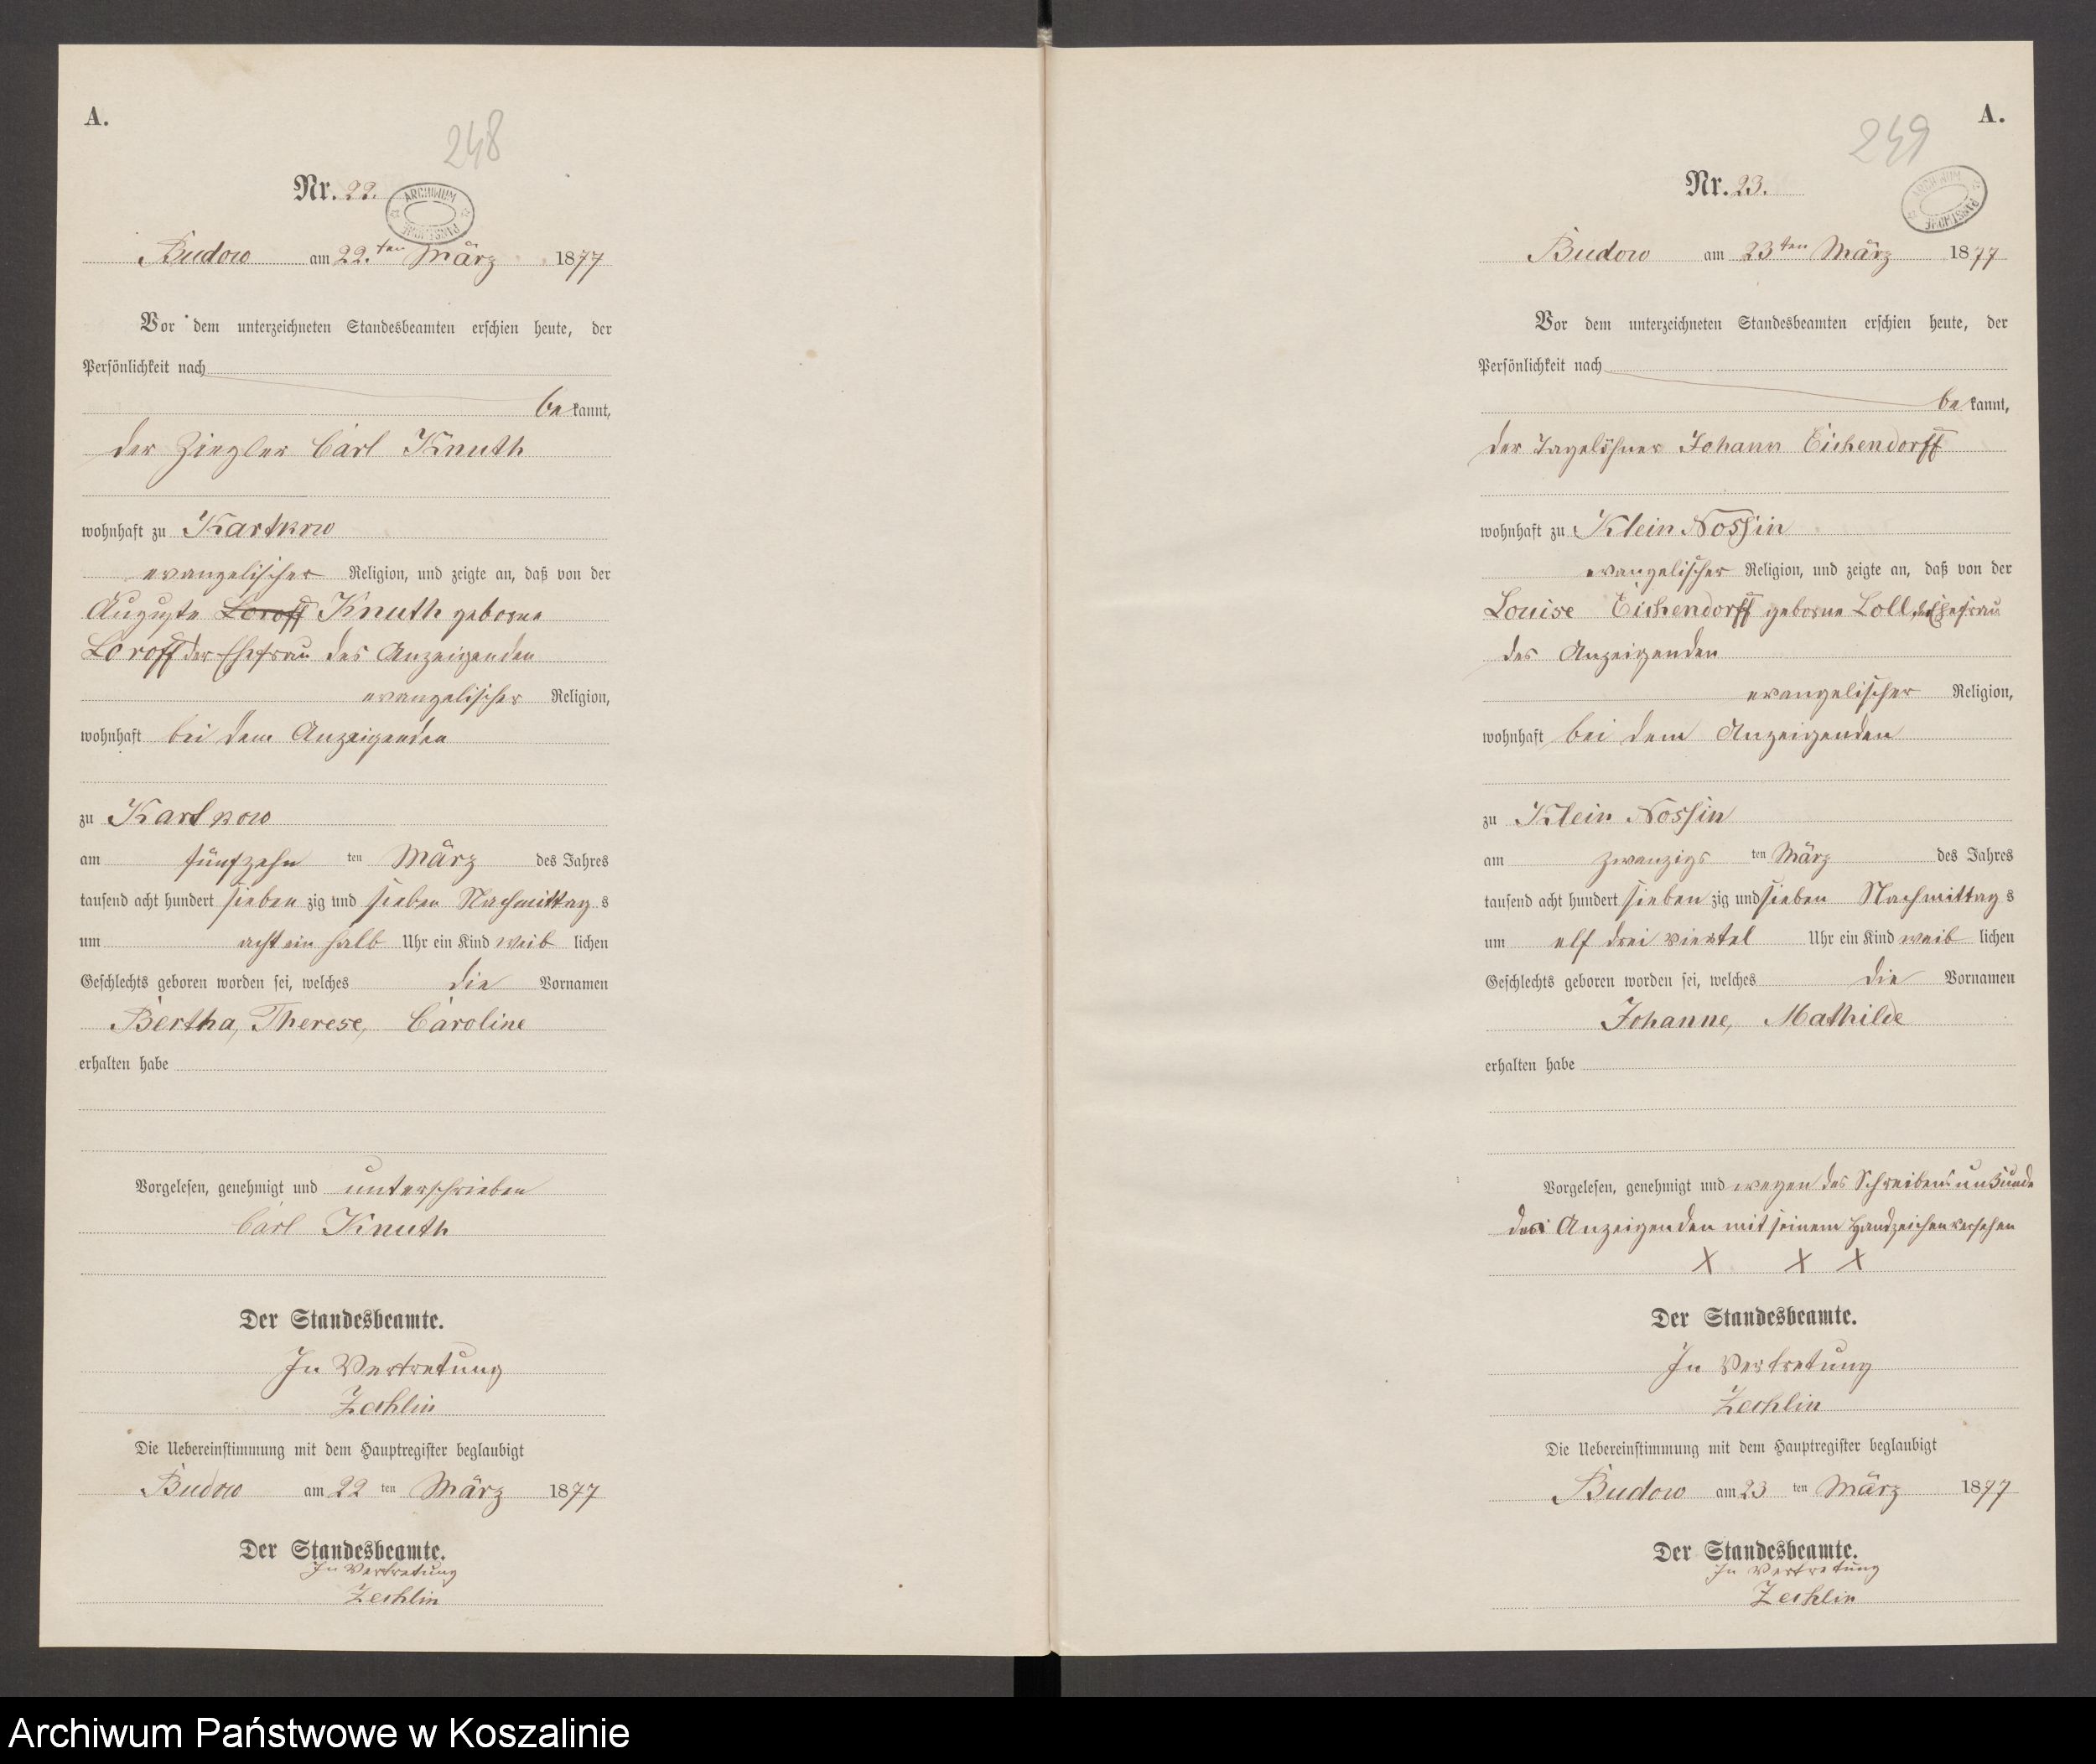 A.
248
Nr. 22.
ARCHIWUM PAŃSTWOWE
Budow am 22.ten März 1877
Vor dem unterzeichneten Standesbeamten erschien heute, der
Persönlichkeit nach
be kannt,
der Ziegler Carl Knuth
wohnhaft zu Kartkow
evangelischer Religion, und zeigte an, daß von der
Auguste Loroff Knuth geborne
Loroff der Ehefrau des Anzeigenden
evangelischer Religion,
wohnhaft bei dem Anzeigenden
zu Kartkow
am fünfzehn ten März des Jahres
tausend acht hundert sieben zig und sieben Nachmittag s
um acht ein halb Uhr ein Kind weib lichen
Geschlechts geboren worden sei, welches die Vornamen
Bertha, Therese, Caroline
erhalten habe
Vorgelesen, genehmigt und unterschrieben
Carl Knuth
Der Standesbeamte.
In Vertretung
Zechlin
Die Uebereinstimmung mit dem Hauptregister beglaubigt
Budow am 22 ten März 1877
Der Standesbeamte.
In Vertretung
Zechlin
A.
249
Nr. 23.
ARCHIWUM PAŃSTWOWE
Budow am 23ten März 1877
Vor dem unterzeichneten Standesbeamten erschien heute, der
Persönlichkeit nach
be kannt,
der Tagelöhner Johann Eichendorff
wohnhaft zu Klein Nossin
evangelischer Religion, und zeigte an, daß von der
Louise Eichendorff geborne Loll, der Ehefrau
des Anzeigenden
evangelischer Religion,
wohnhaft bei dem Anzeigenden
zu Klein Nossin
am zwanzigs ten März des Jahres
tausend acht hundert sieben zig und sieben Nachmittag s
um elf drei viertel Uhr ein Kind weib lichen
Geschlechts geboren worden sei, welches die Vornamen
Johanne, Mathilde
erhalten habe
Vorgelesen, genehmigt und wegen des Schreibens unkunde
des Anzeigenden mit seinem Handzeichen versehen
X X X
Der Standesbeamte.
In Vertretung
Zechlin
Die Uebereinstimmung mit dem Hauptregister beglaubigt
Budow am 23 ten März 1877
Der Standesbeamte.
In Vertretung
Zechlin
Archiwum Państwowe w Koszalinie